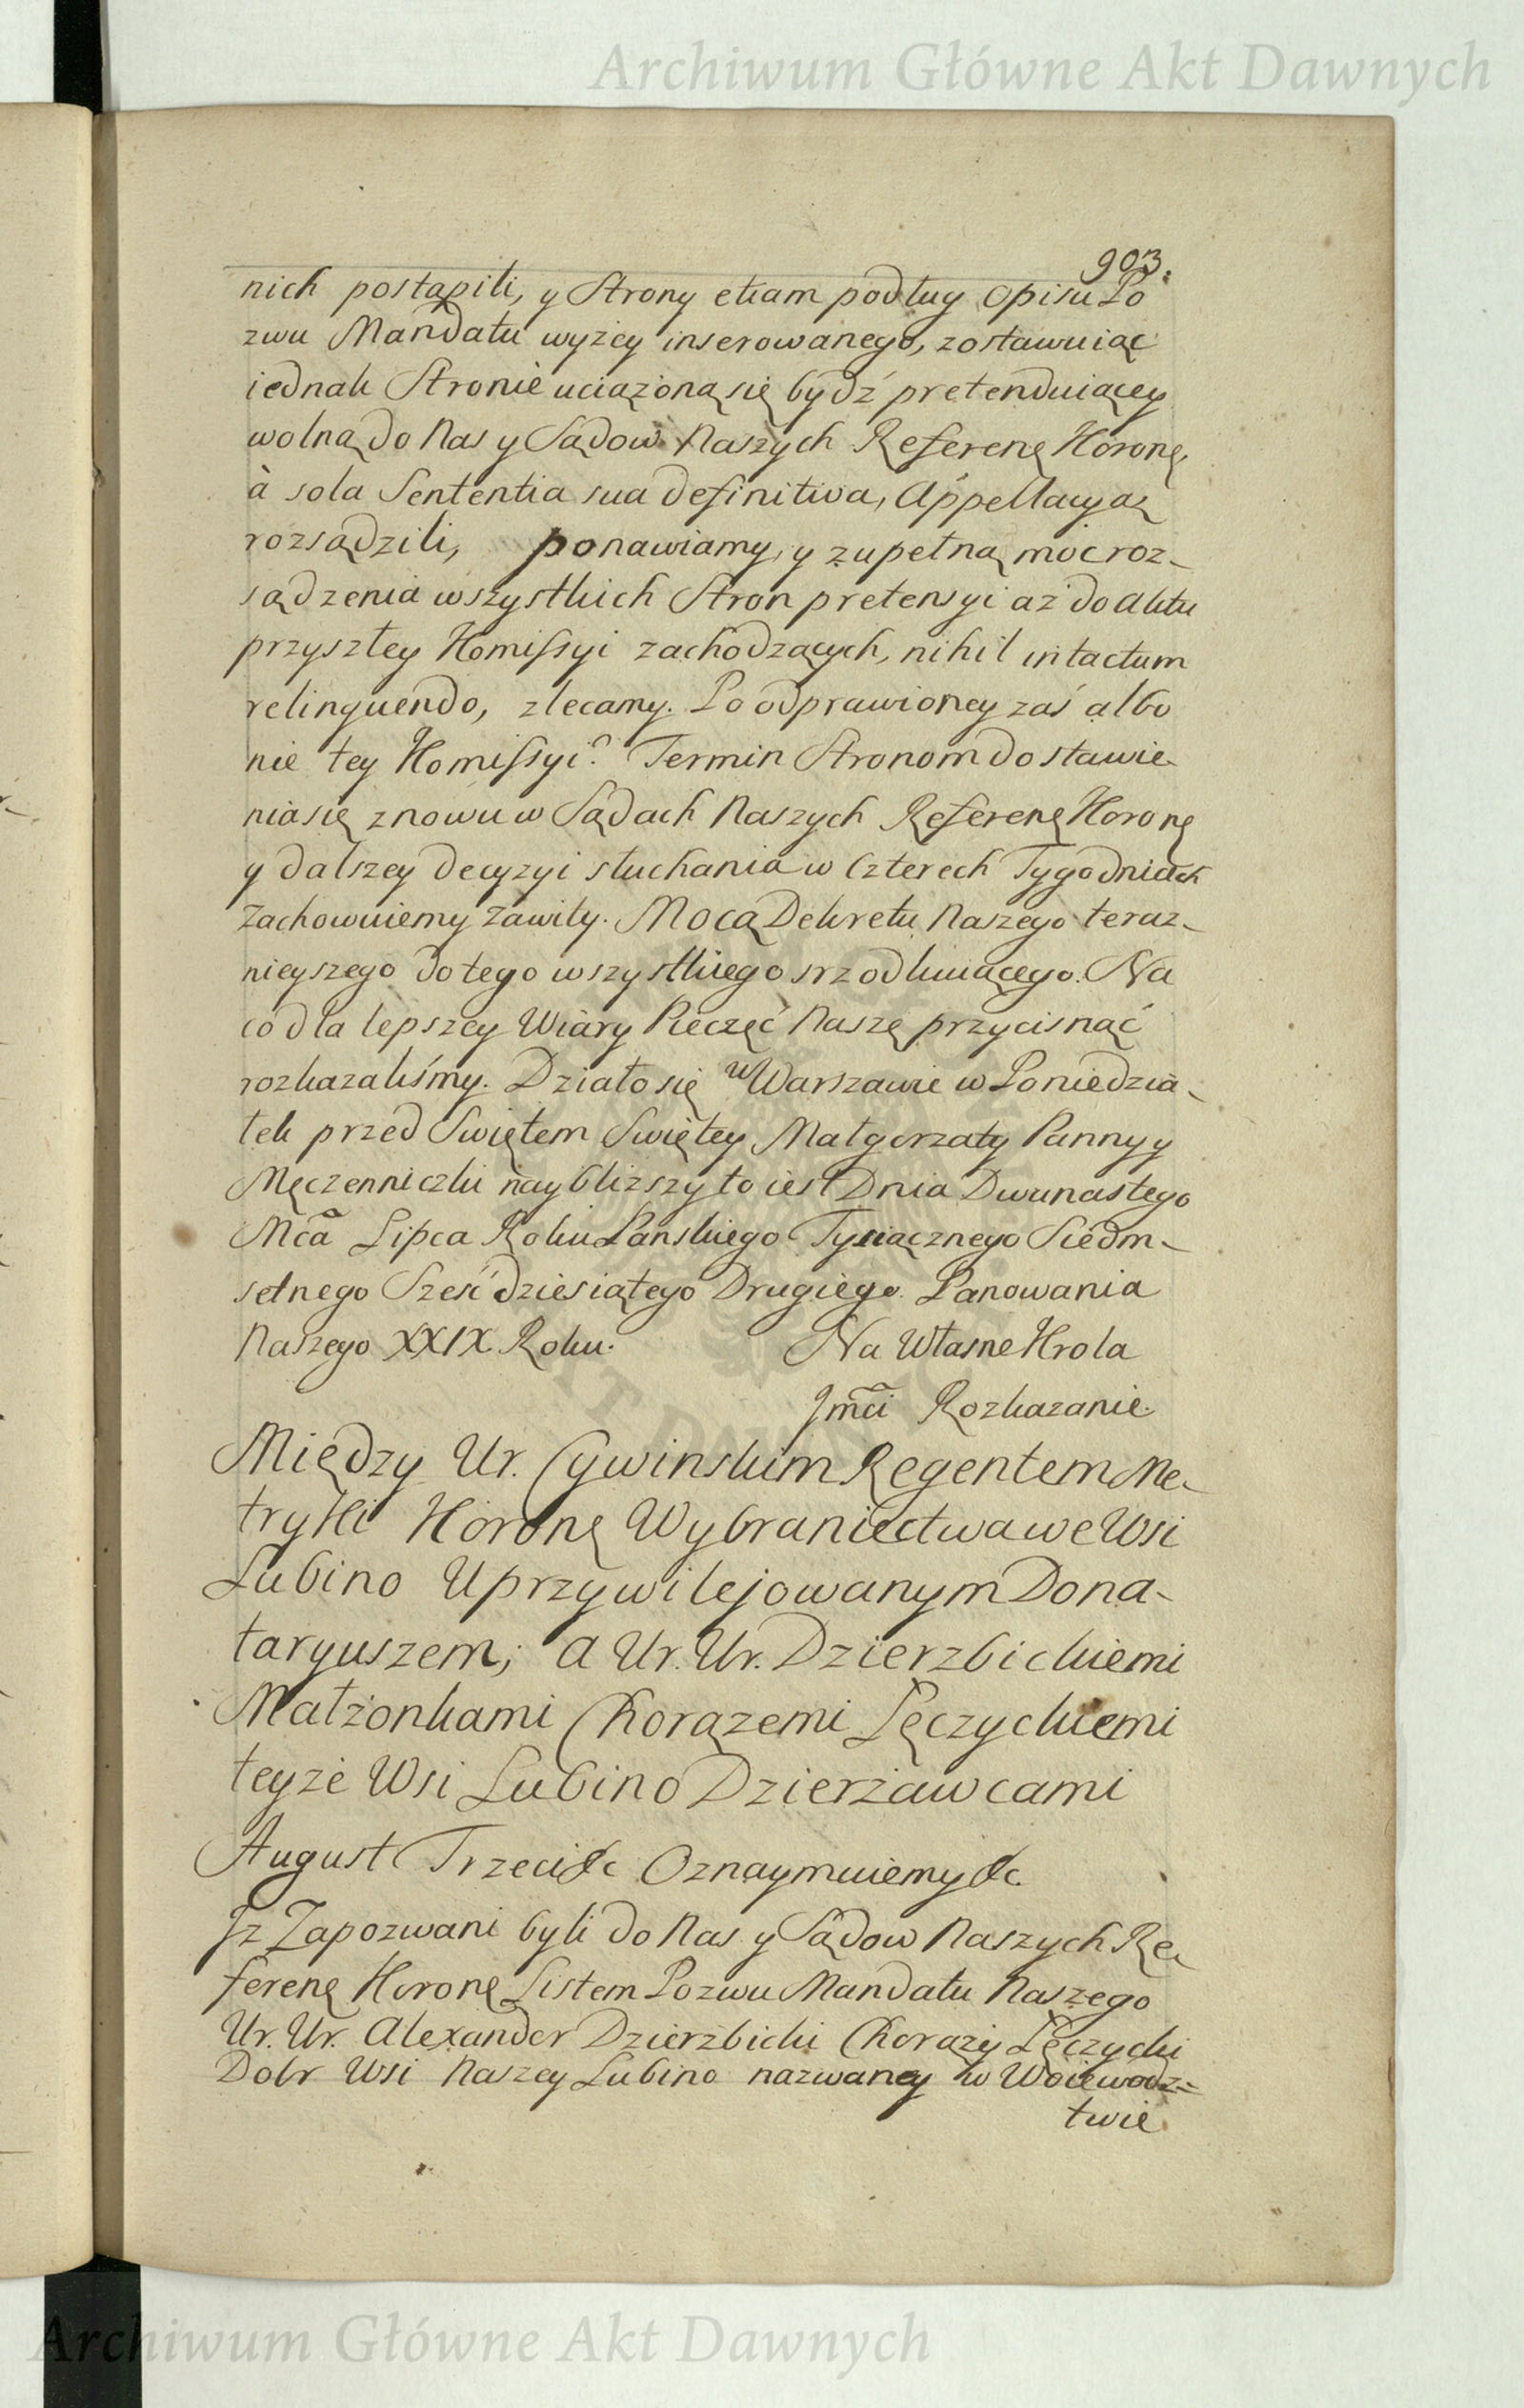 Archiwum Główne Akt Dawnych
903.
nich postąpili, y Strony etiam podług Opisu Po
zwu Mandatu wyżey inserowanego, zostawuiąc
iednak Stronie uciążoną się bydź pretenduiącey
wolną do Nas y Sądow Naszych Referenę Koronę,
à sola Sententia sua definitiva, Appellacyą
rozsądzili, ponawiamy, y zupełną moc roz-
sądzenia wszystkich Stron pretensyi aż do aktu
przyszłey Komissyi zachodzących, nihil intactum
relinquendo, zlecamy. Po odprawioney zaś albo
nie tey Komissyi? Termin Stronom do stawie-
nia się znowu w Sądach Naszych Referenę Koronę
y dalszey decyzyi słuchania w Czterech Tygodniach
zachowuiemy zawity. Mocą Dekretu Naszego teraz-
nieyszego do tego wszystkiego srzodkuiącego. Na
co dla lepszey Wiary Pieczęć Naszę przycisnąć
rozkazaliśmy. Działo się w Warszawie w Poniedzia-
łek przed Swiętem Swiętey Małgorzaty Panny y
Męczenniczki naybliższy to iest Dnia Dwunastego
Mca Lipca Roku Panskiego Tysiącznego Siedm-
setnego Sześćdziesiątego Drugiego. Panowania
Naszego XXIX Roku. Na Własne Krola
Jmci Rozkazanie.
Między Ur. Cywinskim Regentem Me-
tryki Koronę Wybraniectwa we Wsi
Lubino Uprzywilejowanym Dona-
taryuszem; a Ur. Ur. Dzierzbickiemi
Małżonkami Chorążemi Łęczyckiemi
teyże Wsi Lubino Dzierżawcami
August Trzeci &c Oznaymuiemy &c.
Jż Zapozwani byli do Nas y Sądow Naszych Re-
ferenę Koronę Listem Pozwu Mandatu Naszego
Ur. Ur. Alexander Dzierżbicki Chorąży Łęczycki
Dobr Wsi Naszey Lubino nazwaney w Woiewodz=
twie
Archiwum Główne Akt Dawnych